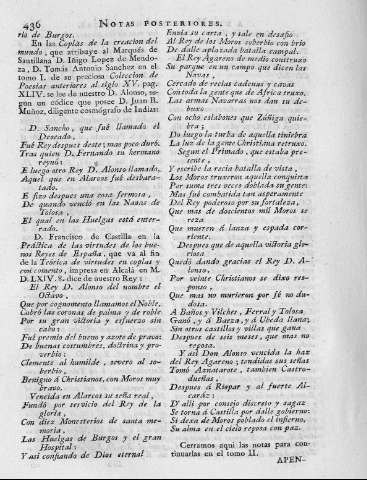 436 NOTAS POSTERIORES.
rio de Burgos.
En las Coplas de la creacion del
mundo, que atribuye al Marqués de
Santillana D. Iñigo Lopez de Mendo-
za, D. Tomás Antonio Sanchez en el
tomo I. de su preciosa Coleccion de
Poesías anteriores al siglo XV. pag.
XLIV. se lee de nuestro D. Alonso, se-
gun un códice que posee D. Juan B.
Muñoz, diligente cosmógrafo de Indias:
D. Sancho, que fué llamado el
Deseado,
Fué Rey despues deste; mas poco duró.
Tras quien D. Fernando su hermano
reynó:
E luego otro Rey D. Alonso llamado,
Aquel que en Alarcos fué desbara-
tado.
E fizo despues una cosa fermosa,
De quando venció en las Navas de
Tolosa,
El qual en las Huelgas está enter-
rado.
D. Francisco de Castilla en la
Práctica de las virtudes de los bue-
nos Reyes de España, que va al fin
de la Teórica de virtudes en coplas y
con comento, impresa en Alcalá en M.
D.LXIV. 8. dice de nuestro Rey:
El Rey D. Alonso del nombre el
Octavo,
Que por cognomento llamamos el Noble,
Cobró las coronas de palma y de roble
Por su gran vitoria y esfuerzo sin
cabo:
Fué premio del bueno y azote de pravo:
De buenas costumbres, dotrina y pro-
verbio:
Clemente al humilde, severo al so-
berbio,
Benigno á Christianos, con Moros muy
bravo.
Vencida en Alarcos su seña real,
Fundó por servicio del Rey de la
gloria,
Con diez Monesterios de santa me-
moria,
Las Huelgas de Burgos y el gran
Hospital:
Y asi confiando de Dios eternal
Envia su carta, y sale en desafio
Al Rey de los Moros soberbio con brio
De dalle aplazada batalla campal.
El Rey Agareno de medio construxo
Su parque en un campo que dicen las
Navas,
Cercado de recias cadenas y cavas
Con toda la gente que de Africa truxo.
Las armas Navarras nos dan su de-
buxo
Con ocho eslabones que Zúñiga quie-
bra;
Do luego la turba de aquella tiniebra
La luz de la gente Christiana retruxo.
Segun el Primado, que estaba pre-
sente,
Y escribe la recia batalla de vista,
Los Moros truxeron aquella conquista
Por suma tres veces doblada en gente:
Mas fué combatida tan asperamente
Del Rey poderoso por su fortaleza,
Que mas de doscientos mil Moros se
reza
Que mueren á lanza y espada cor-
riente.
Despues que de aquella victoria glo-
riosa
Quedó dando gracias el Rey D. A-
lonso,
Por veinte Christianos se dixo res-
ponso,
Que mas no murieron por fé no du-
dosa.
A Baños y Vilches, Ferral y Tolosa
Ganó, y á Baeza, y á Ubeda llana,
Sin otras castillas y villas que gana
Despues de seis meses, que mas no
reposa.
Y asi Don Alonso vencida la haz
del Rey Agareno, tendidas sus señas
Tomó Aznatarate, tambien Castro-
dueñas,
Despues á Riopar y al fuerte Al-
caráz:
D'alli por consejo discreto y sagaz
Se torna á Castilla por dalle gobierno:
Si dexa de Moros poblado el infierno,
Su alma en el cielo reposa con paz.
Cerramos aqui las notas para con-
tinuarlas en el tomo II.
APEN-